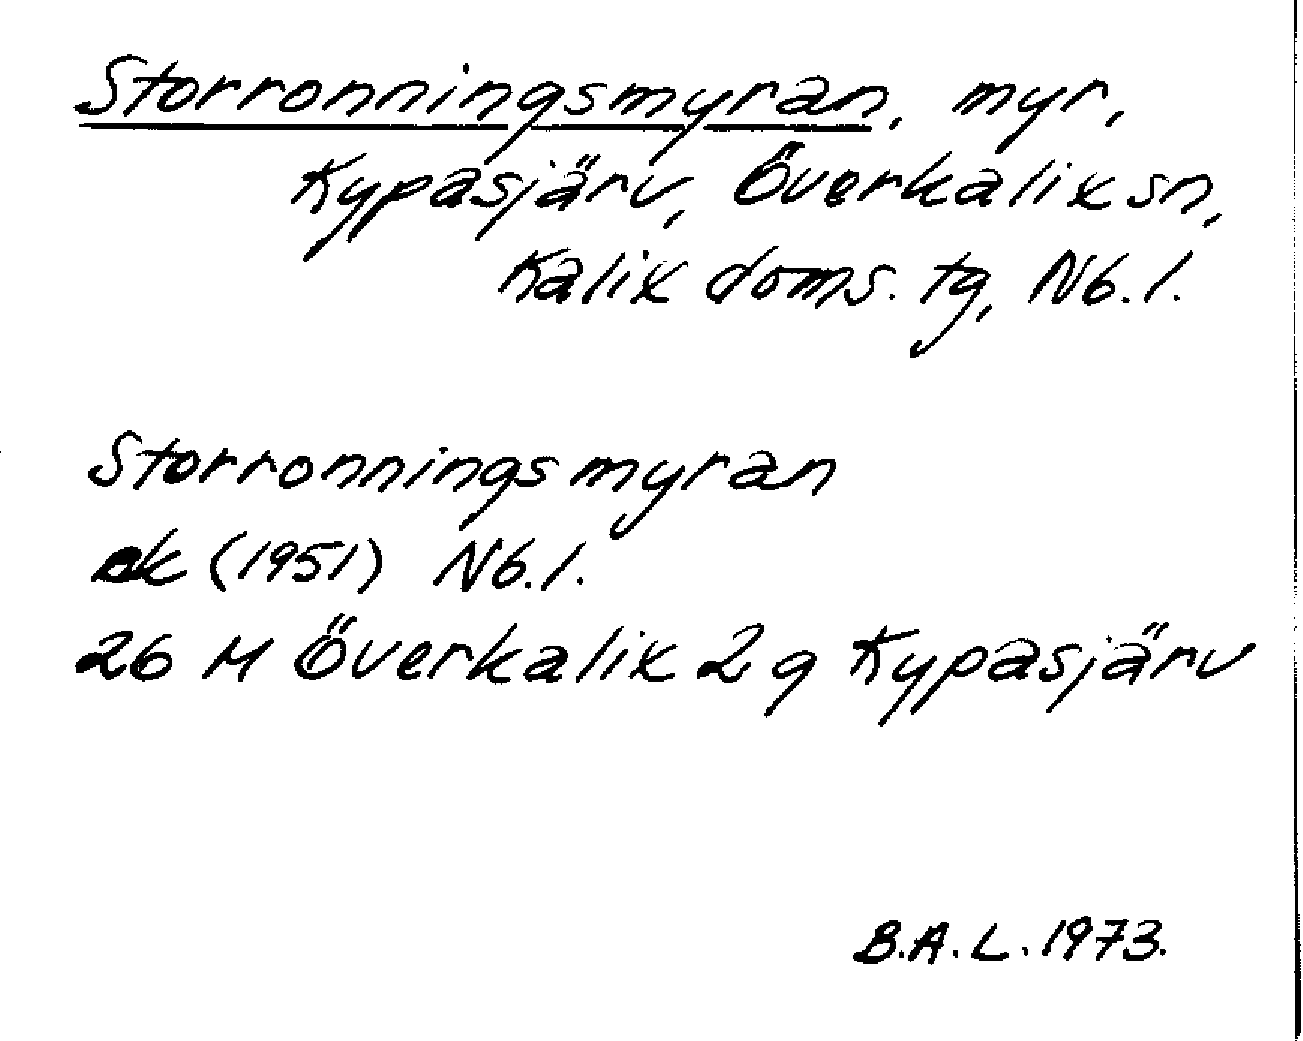 Storronningsmyran, myr,
Kypasjärv, Överkalix sn,
Kalix doms. tg, Nb. l.
Storronningsmyran
ek (1951) Nb. l.
26 M Överkalix 2 g Kypasjärv
B.A.L. 1973.